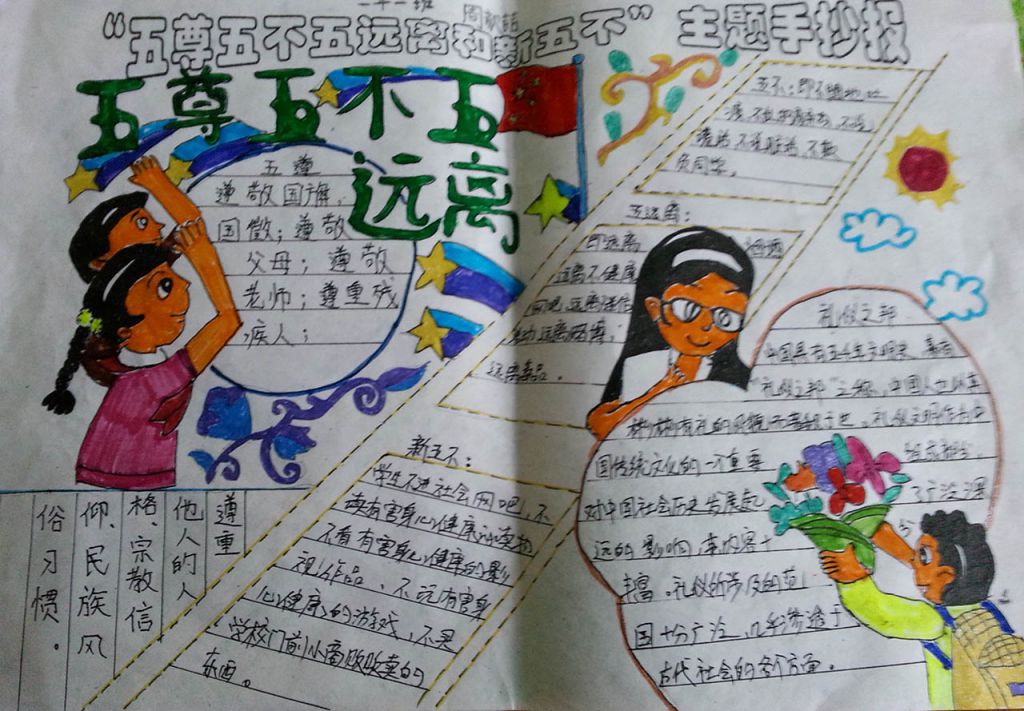 二十一班
“五尊五不五远离和新五不”主题手抄报
五尊五不五
远离
五遵
遵敬国旗，
国徽；遵敬
父母；遵敬
老师；遵重残
疾人；
五不：即不随地吐
痰、不乱扔
脏话、不欺
负同学。
五远离：
即远离
远离不健康
网吧、远离迷信
动、远离赌博；
远离毒品。
礼仪之邦
中国具有五千年文明史，素有
“礼仪之邦”之称，中国人也以其
彬彬有礼的风貌而著称于世。礼仪文明作为中
国传统文化的一个重要组成部分，
对中国社会历史发展起了广泛深
远的影响，其内容十
丰富。礼仪所涉及的范
围十分广泛，几乎渗透于
古代社会的各个方面。
新五不：
学生不进社会网吧，不
读有害身心健康的读物
不看有害身心健康的影
视作品、不玩有害身
心健康的游戏，不买
学校门前小商贩贩卖的
东西。
遵重
他人的人
格、宗教信
仰、民族风
俗习惯。